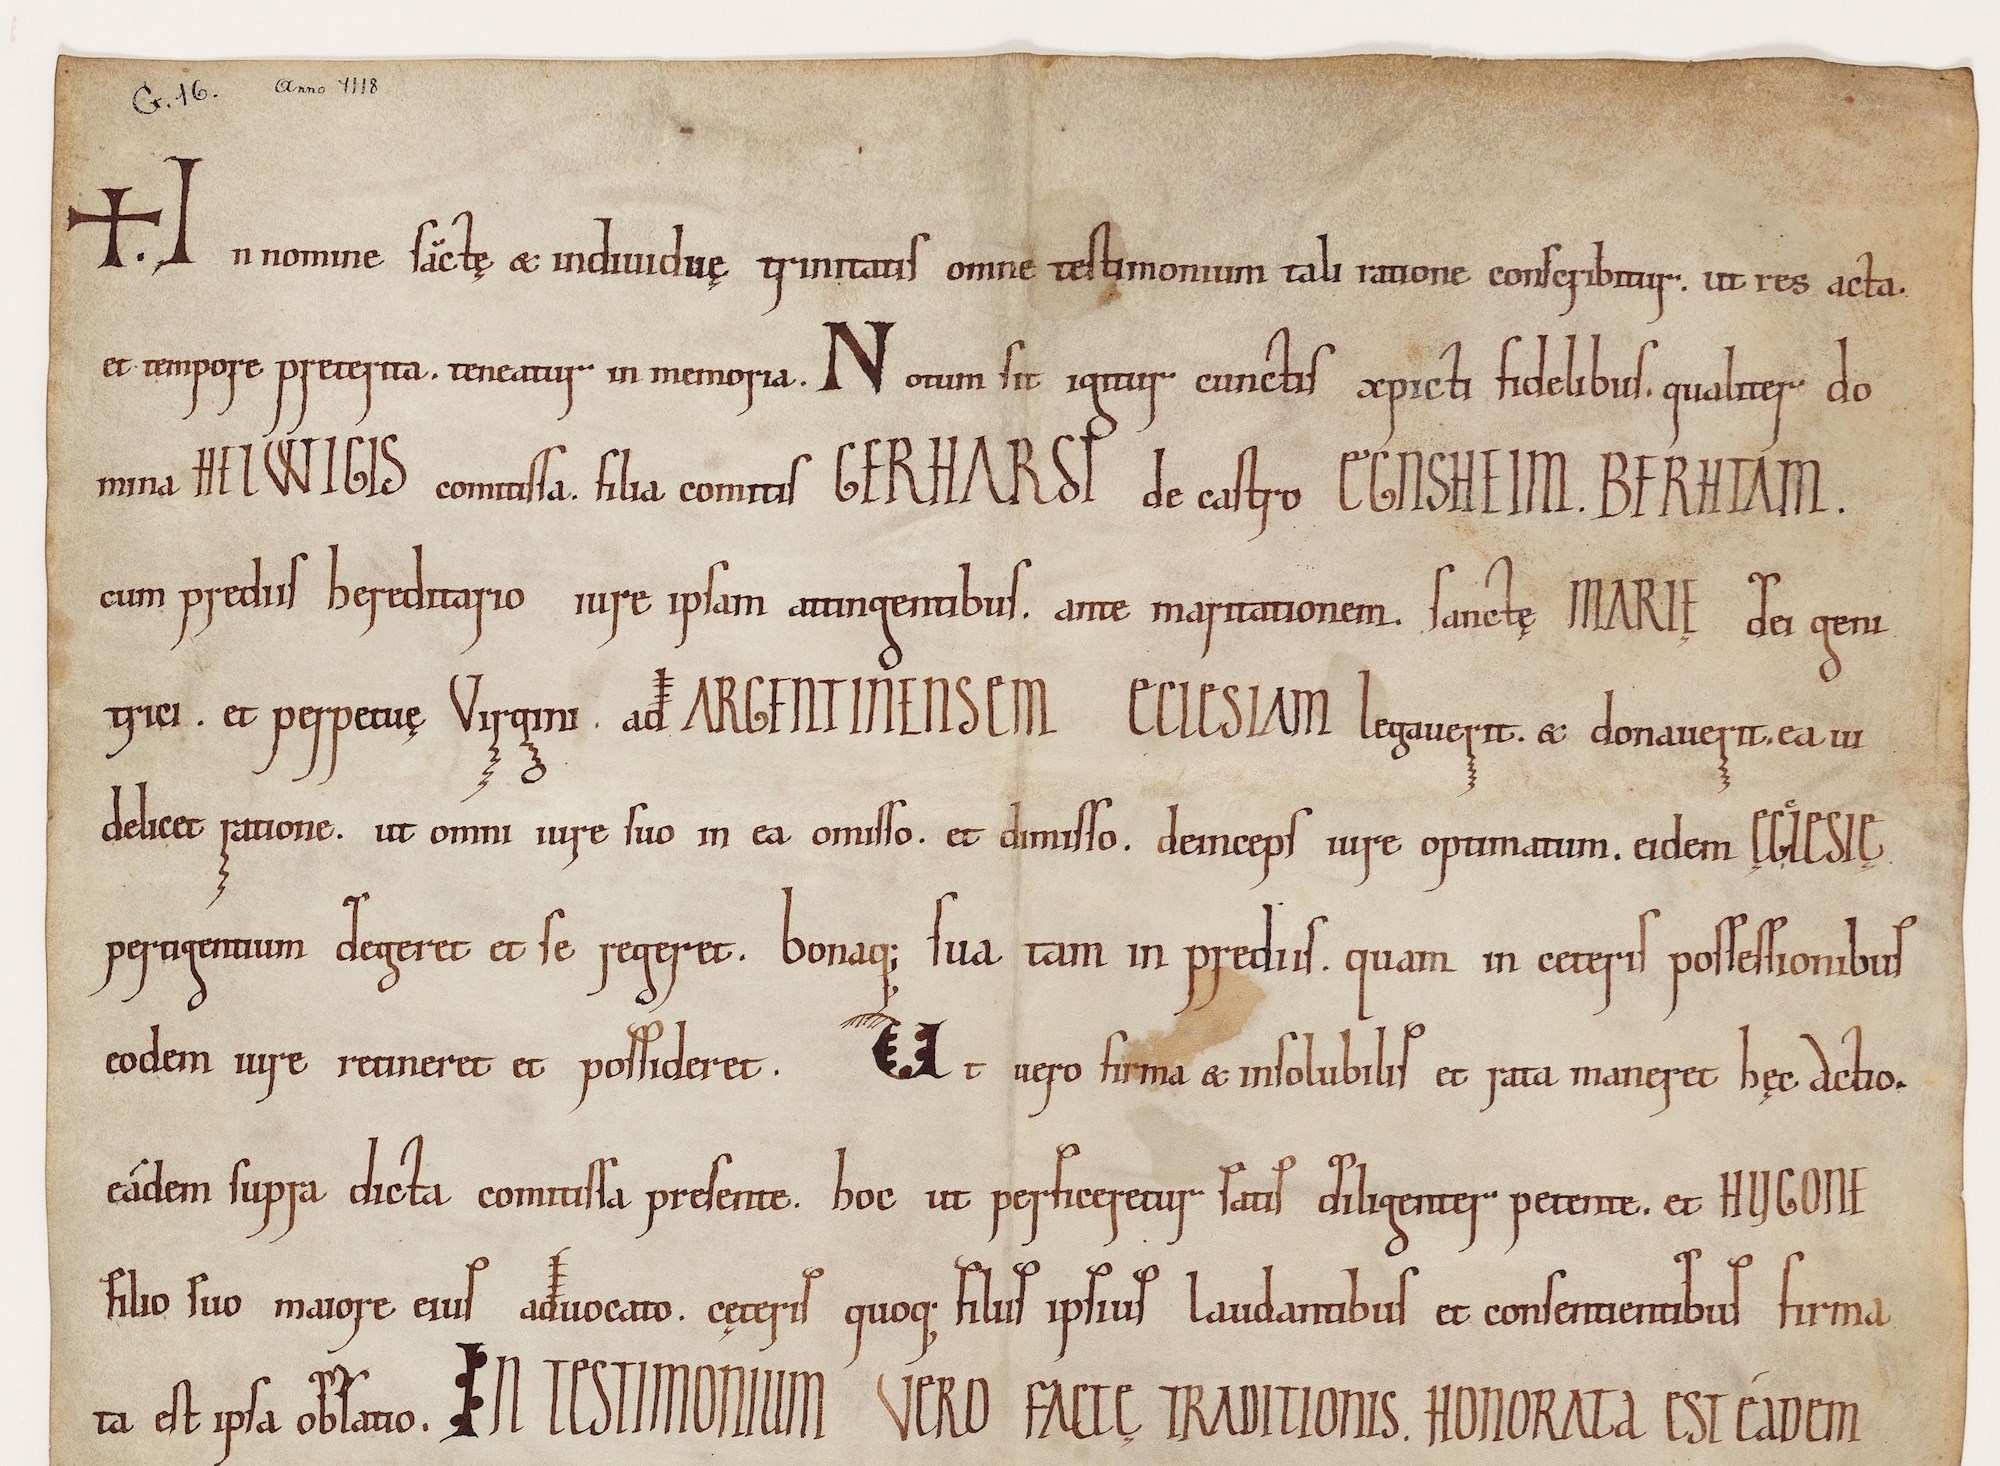 G. 16. Anno 1118
+. In nomine sc̄tę & indiuiduę trinitatis omne testimonium tali ratione conscribitur. ut res acta.
et tempore preterita. teneatur in memoria. Notum sit igitur cunctis xpicti fidelibus. qualiter do
mina HELWIGIS comitissa. filia comitis GERHARSI de castro EGNSHEIM. BERHTAM.
cum prediis hereditario iure ipsam attingentibus. ante maritationem. sanctę MARIĘ dei geni
trici. et perpetuę Virgini. ad ARGENTINENSEM ECLESIAM legauerit. & donauerit. ea ui
delicet ratione. ut omni iure suo in ea omisso. et dimisso. deinceps iure optimatum. eidem ĘCLESIĘ
pertigentium degeret et se regeret. bonaq; sua tam in prediis. quam in ceteris possessionibus
eodem iure retineret et possideret. Ut uero firma & insolubilis et rata maneret hęc Actio.
eádem supra dicta comitissa presente. hoc ut perficeretur satis diligenter petente. et HUGONE
filio suo maiore eius aduocato. cęteris quoq; filiis ipsius laudantibus et consentientibus firma
ta est ipsa oblatio. IN TESTIMONIUM VERO FACTĘ TRADITIONIS. HONORATA EST EÁDEM